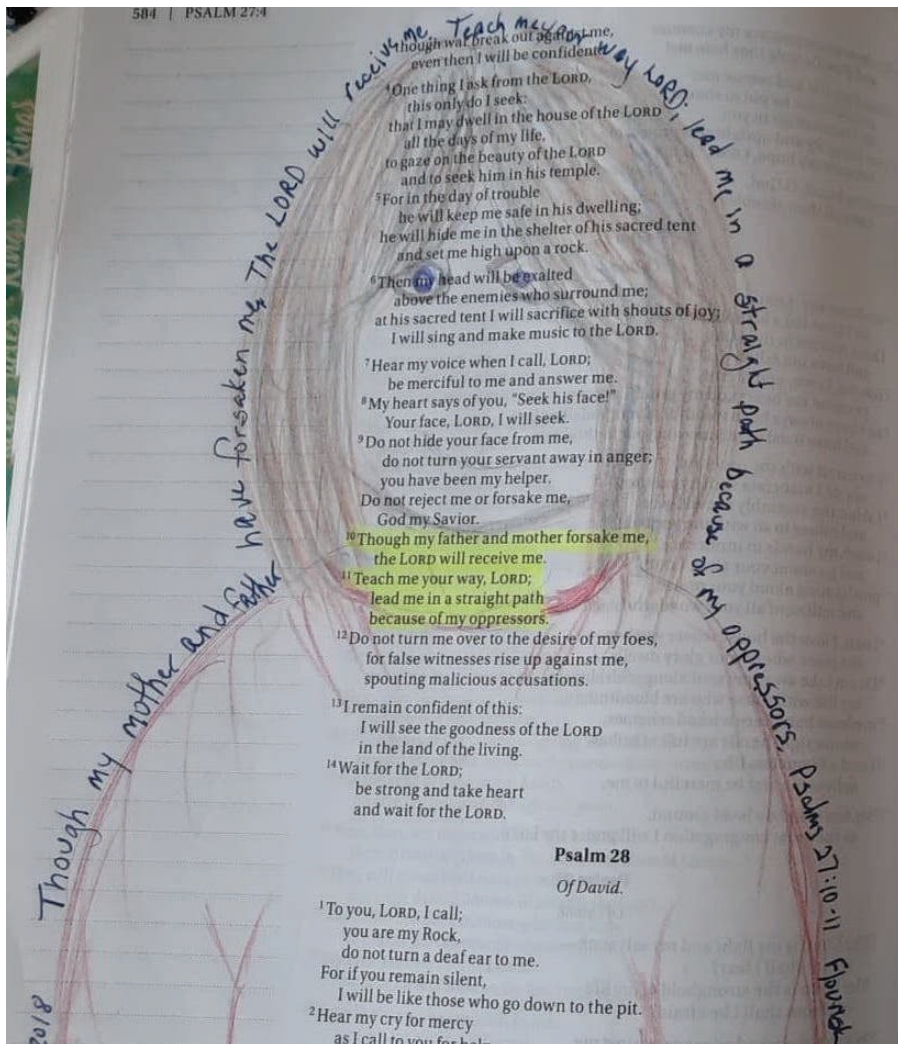 584 | PSALM 27:4
though war break out against me,
even then I will be confident.
4One thing I ask from the LORD,
this only do I seek:
that I may dwell in the house of the LORD
all the days of my life,
to gaze on the beauty of the LORD
and to seek him in his temple.
5For in the day of trouble
he will keep me safe in his dwelling;
he will hide me in the shelter of his sacred tent
and set me high upon a rock.
6Then my head will be exalted
above the enemies who surround me;
at his sacred tent I will sacrifice with shouts of joy;
I will sing and make music to the LORD.
7Hear my voice when I call, LORD;
be merciful to me and answer me.
8My heart says of you, "Seek his face!"
Your face, LORD, I will seek.
9Do not hide your face from me,
do not turn your servant away in anger;
you have been my helper.
Do not reject me or forsake me,
God my Savior.
10Though my father and mother forsake me,
the LORD will receive me.
11Teach me your way, LORD;
lead me in a straight path
because of my oppressors.
12Do not turn me over to the desire of my foes,
for false witnesses rise up against me,
spouting malicious accusations.
13I remain confident of this:
I will see the goodness of the LORD
in the land of the living.
14Wait for the LORD;
be strong and take heart
and wait for the LORD.
Psalm 28
Of David.
1To you, LORD, I call;
you are my Rock,
do not turn a deaf ear to me.
For if you remain silent,
I will be like those who go down to the pit.
2Hear my cry for mercy
as I call to you for help
Though my mother and father have forsaken me, The LORD will receive me. Teach me your way LORD; lead me in a straight path because of my oppressors. Psalms 27:10-11 Flourish
2018
Kings